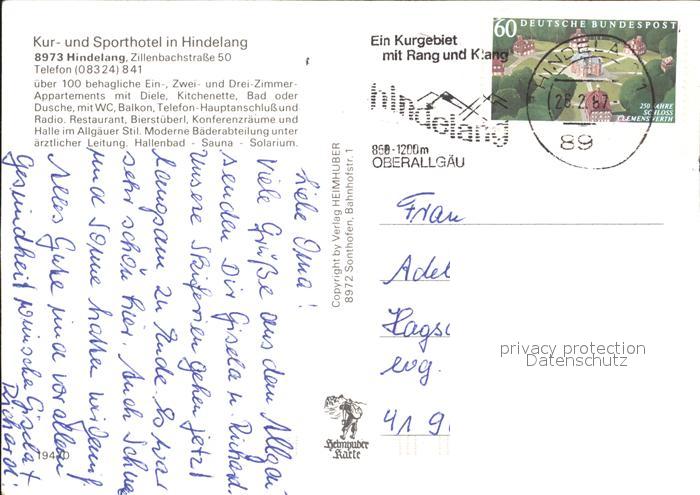 Kur- und Sporthotel in Hindelang
8973 Hindelang, Zillenbachstraße 50
Telefon (08324) 841
über 100 behagliche Ein-, Zwei- und Drei-Zimmer-
Appartements mit Diele, Kitchenette, Bad oder
Dusche, mit WC, Balkon, Telefon-Hauptanschluß und
Radio. Restaurant, Bierstüberl, Konferenzräume und
Halle im Allgäuer Stil. Moderne Bäderabteilung unter
ärztlicher Leitung. Hallenbad - Sauna - Solarium.
Liebe Oma!
Viele Grüße aus dem Allgäu
senden Dir Gisela u. Richard.
Unsere Skiferien gehen jetzt
langsam zu Ende. Es war
sehr schön hier. Auch Schnee
und Sonne hatten wir genug
Alles Gute und vor allem
Gesundheit wünschen Gisela +
Richard!
19420
Copyright by Verlag HEIMHUBER
8972 Sonthofen, Bahnhofstr. 1
Heimhuber
Karte
Ein Kurgebiet
mit Rang und Klang
hindelang
850-1200m
OBERALLGÄU
60 DEUTSCHE BUNDESPOST
250 JAHRE
SCHLOSS
CLEMENSWERTH
HINDELANG 1
28.2.87
89
Frau
Adel
Hags
evg.
41 9
privacy protection
Datenschutz